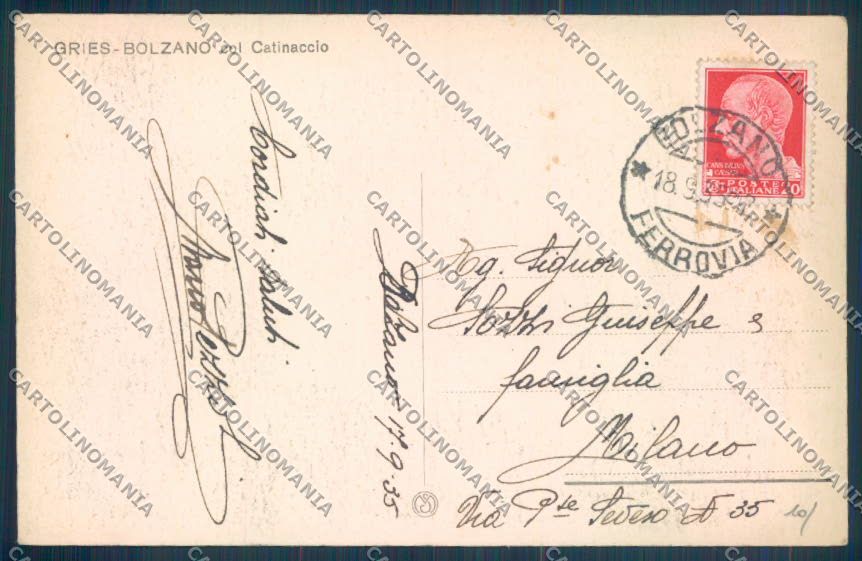 GRIES-BOLZANO col Catinaccio
Cordiali saluti
Bolzano 17-9-35
BOLZANO
18.9.35
FERROVIA
POSTE
ITALIANE
20
Eg. Signor
Giuseppe e
famiglia
Milano
Via Pte Seveso N 35
10/
CARTOLINOMANIA